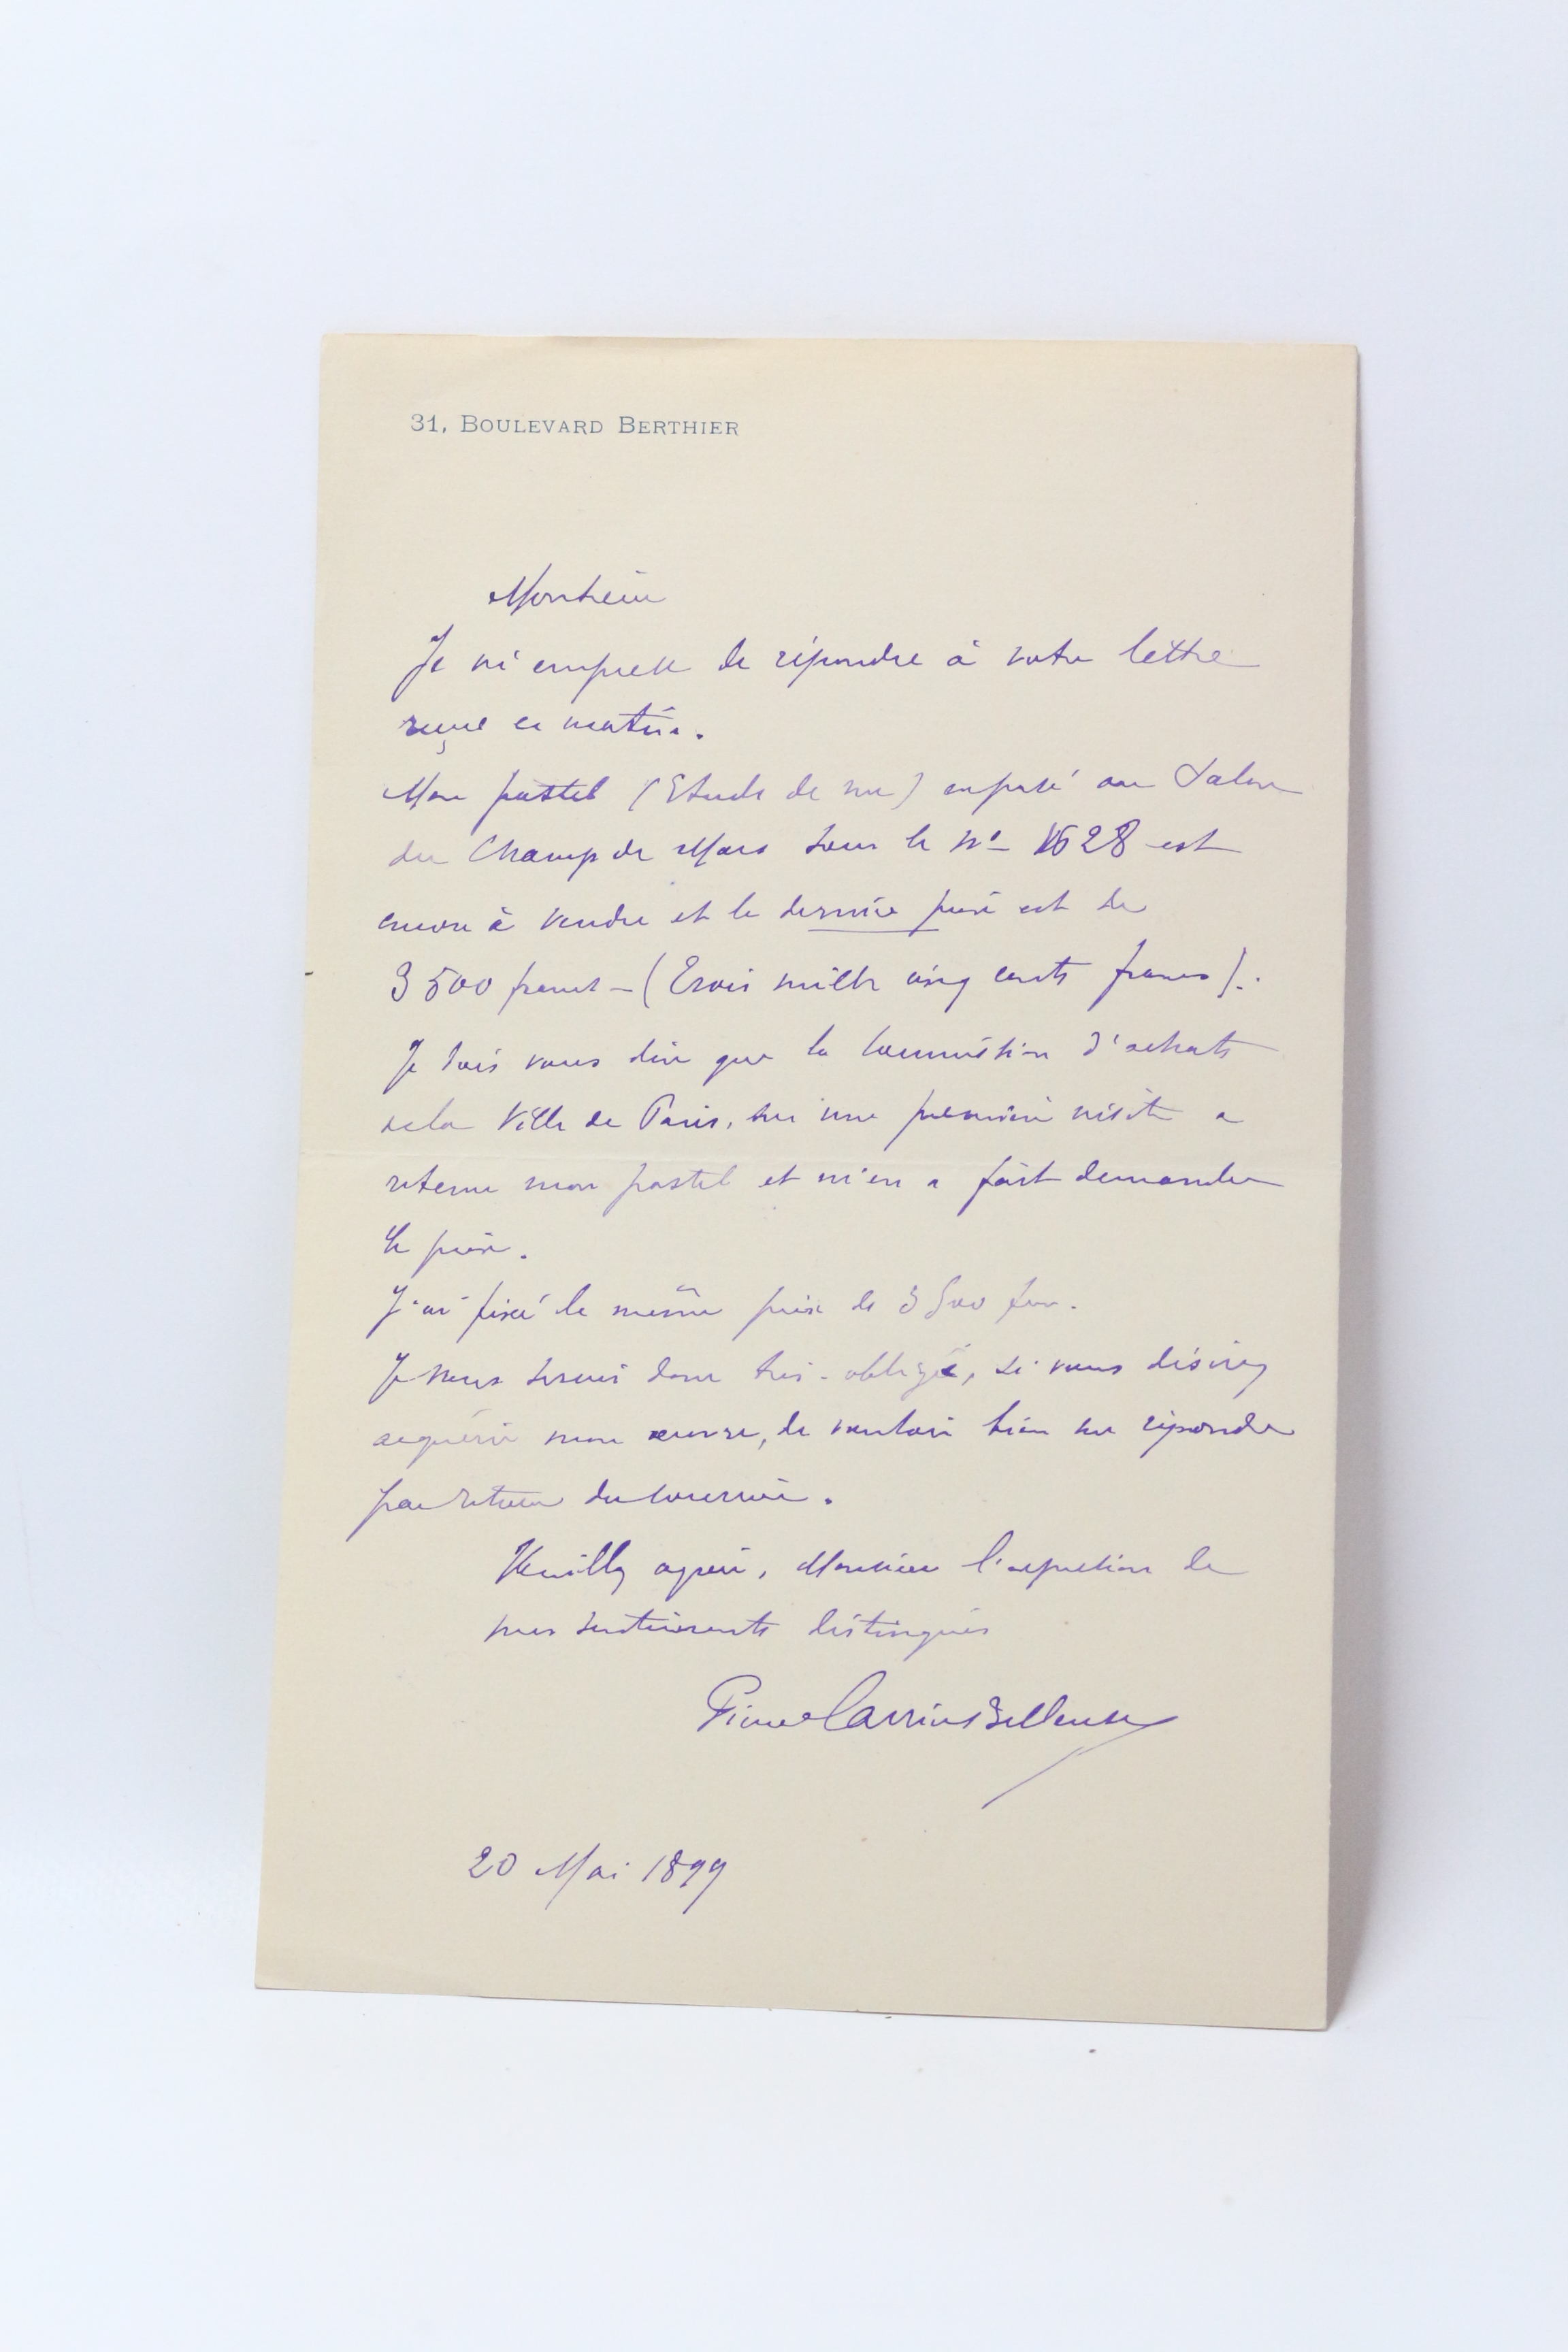 31, BOULEVARD BERTHIER
Monsieur
Je m'empresse de répondre à votre lettre
reçue ce matin.
Mon pastel (Etude de nu) exposé au Salon
du Champ de Mars sous le Nº 1628 est
encore à vendre et le dernier prix est de
3500 francs - (Trois mille cinq cents francs).
Je dois vous dire que la Commission d'achats
de la Ville de Paris, sur une première visite a
retenu mon pastel et m'en a fait demander
le prix.
J'ai fixé le même prix de 3500 frs.
Je vous serais donc très-obligé, si vous désirez
acquérir mon œuvre, de vouloir bien me répondre
par retour du courrier.
Veuillez agréer, Monsieur l'expression de
mes sentiments distingués
Pierre Carrier Belleuse
20 Mai 1899